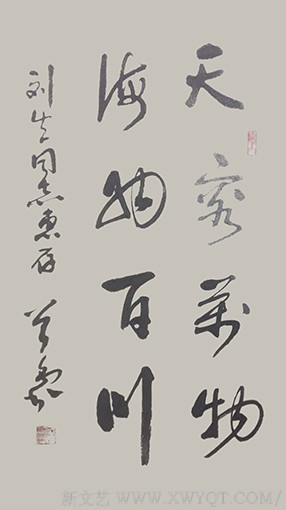 天容萬物
海納百川
刘生同志惠存
新文艺 WWW.XWYQT.COM/